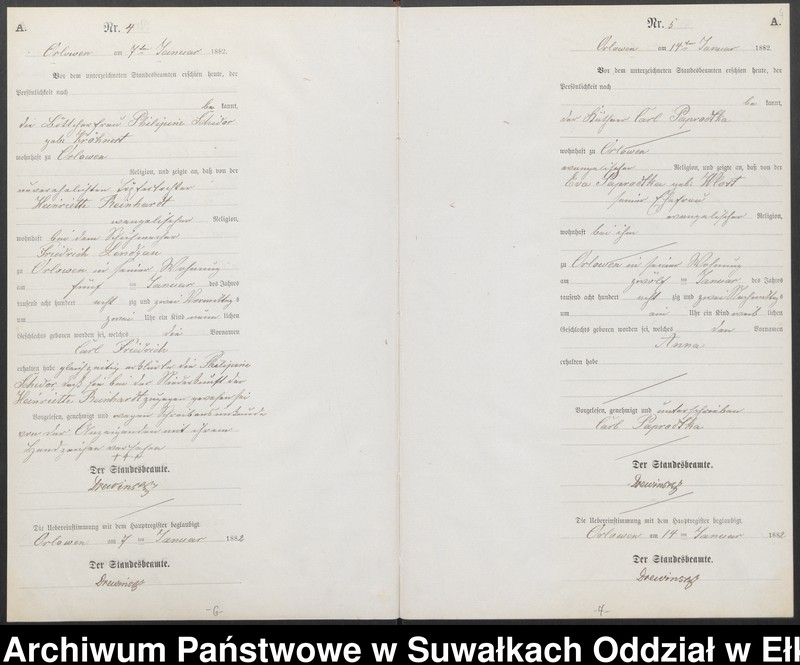 A.
Nr. 4
Orlowen am 7ten Januar 1882.
Vor dem unterzeichneten Standesbeamten erschien heute, der
Persönlichkeit nach
be kannt,
die Böttcherfrau Philipine
geb. Kröhnert
wohnhaft zu Orlowen
Religion, und zeigte an, daß von der
unverehelichten
Heinriette Beinhardt
evangelischer Religion,
wohnhaft bei dem
Friedrich
zu Orlowen in seiner Wohnung
am fünf ten Januar des Jahres
tausend acht hundert acht zig und zwei Vormittags
um zwei Uhr ein Kind männ lichen
Geschlechts geboren worden sei, welches die Vornamen
Carl Friedrich
erhalten habe gleichzeitig erklärte die Philipine
daß sie bei der Niederkunft der
Heinriette Beinhardt zugegen gewesen sei
Vorgelesen, genehmigt und wegen Schreibensunkunde
von der Anzeigenden mit ihrem
Handzeichen versehen
+++
Der Standesbeamte.
Drewinski
Die Uebereinstimmung mit dem Hauptregister beglaubigt
Orlowen am 7 ten Januar 1882
Der Standesbeamte.
Drewinski
-6-
Nr. 5
A.
Orlowen am 14ten Januar 1882.
Vor dem unterzeichneten Standesbeamten erschien heute, der
Persönlichkeit nach
be kannt,
der Käthner Carl Paprodtka
wohnhaft zu Orlowen
evangelischer Religion, und zeigte an, daß von der
Eva Paprodtka geb. Klost
seiner Ehefrau
evangelischer Religion,
wohnhaft bei ihm
zu Orlowen in seiner Wohnung
am zwölf ten Januar des Jahres
tausend acht hundert acht zig und zwei Nachmittags
um ein Uhr ein Kind weib lichen
Geschlechts geboren worden sei, welches den Vornamen
Anna
erhalten habe
Vorgelesen, genehmigt und unterschrieben
Carl Paprodtka
Der Standesbeamte.
Drewinski
Die Uebereinstimmung mit dem Hauptregister beglaubigt
Orlowen am 14 ten Januar 1882
Der Standesbeamte.
Drewinski
-7-
Archiwum Państwowe w Suwałkach Oddział w Ełk